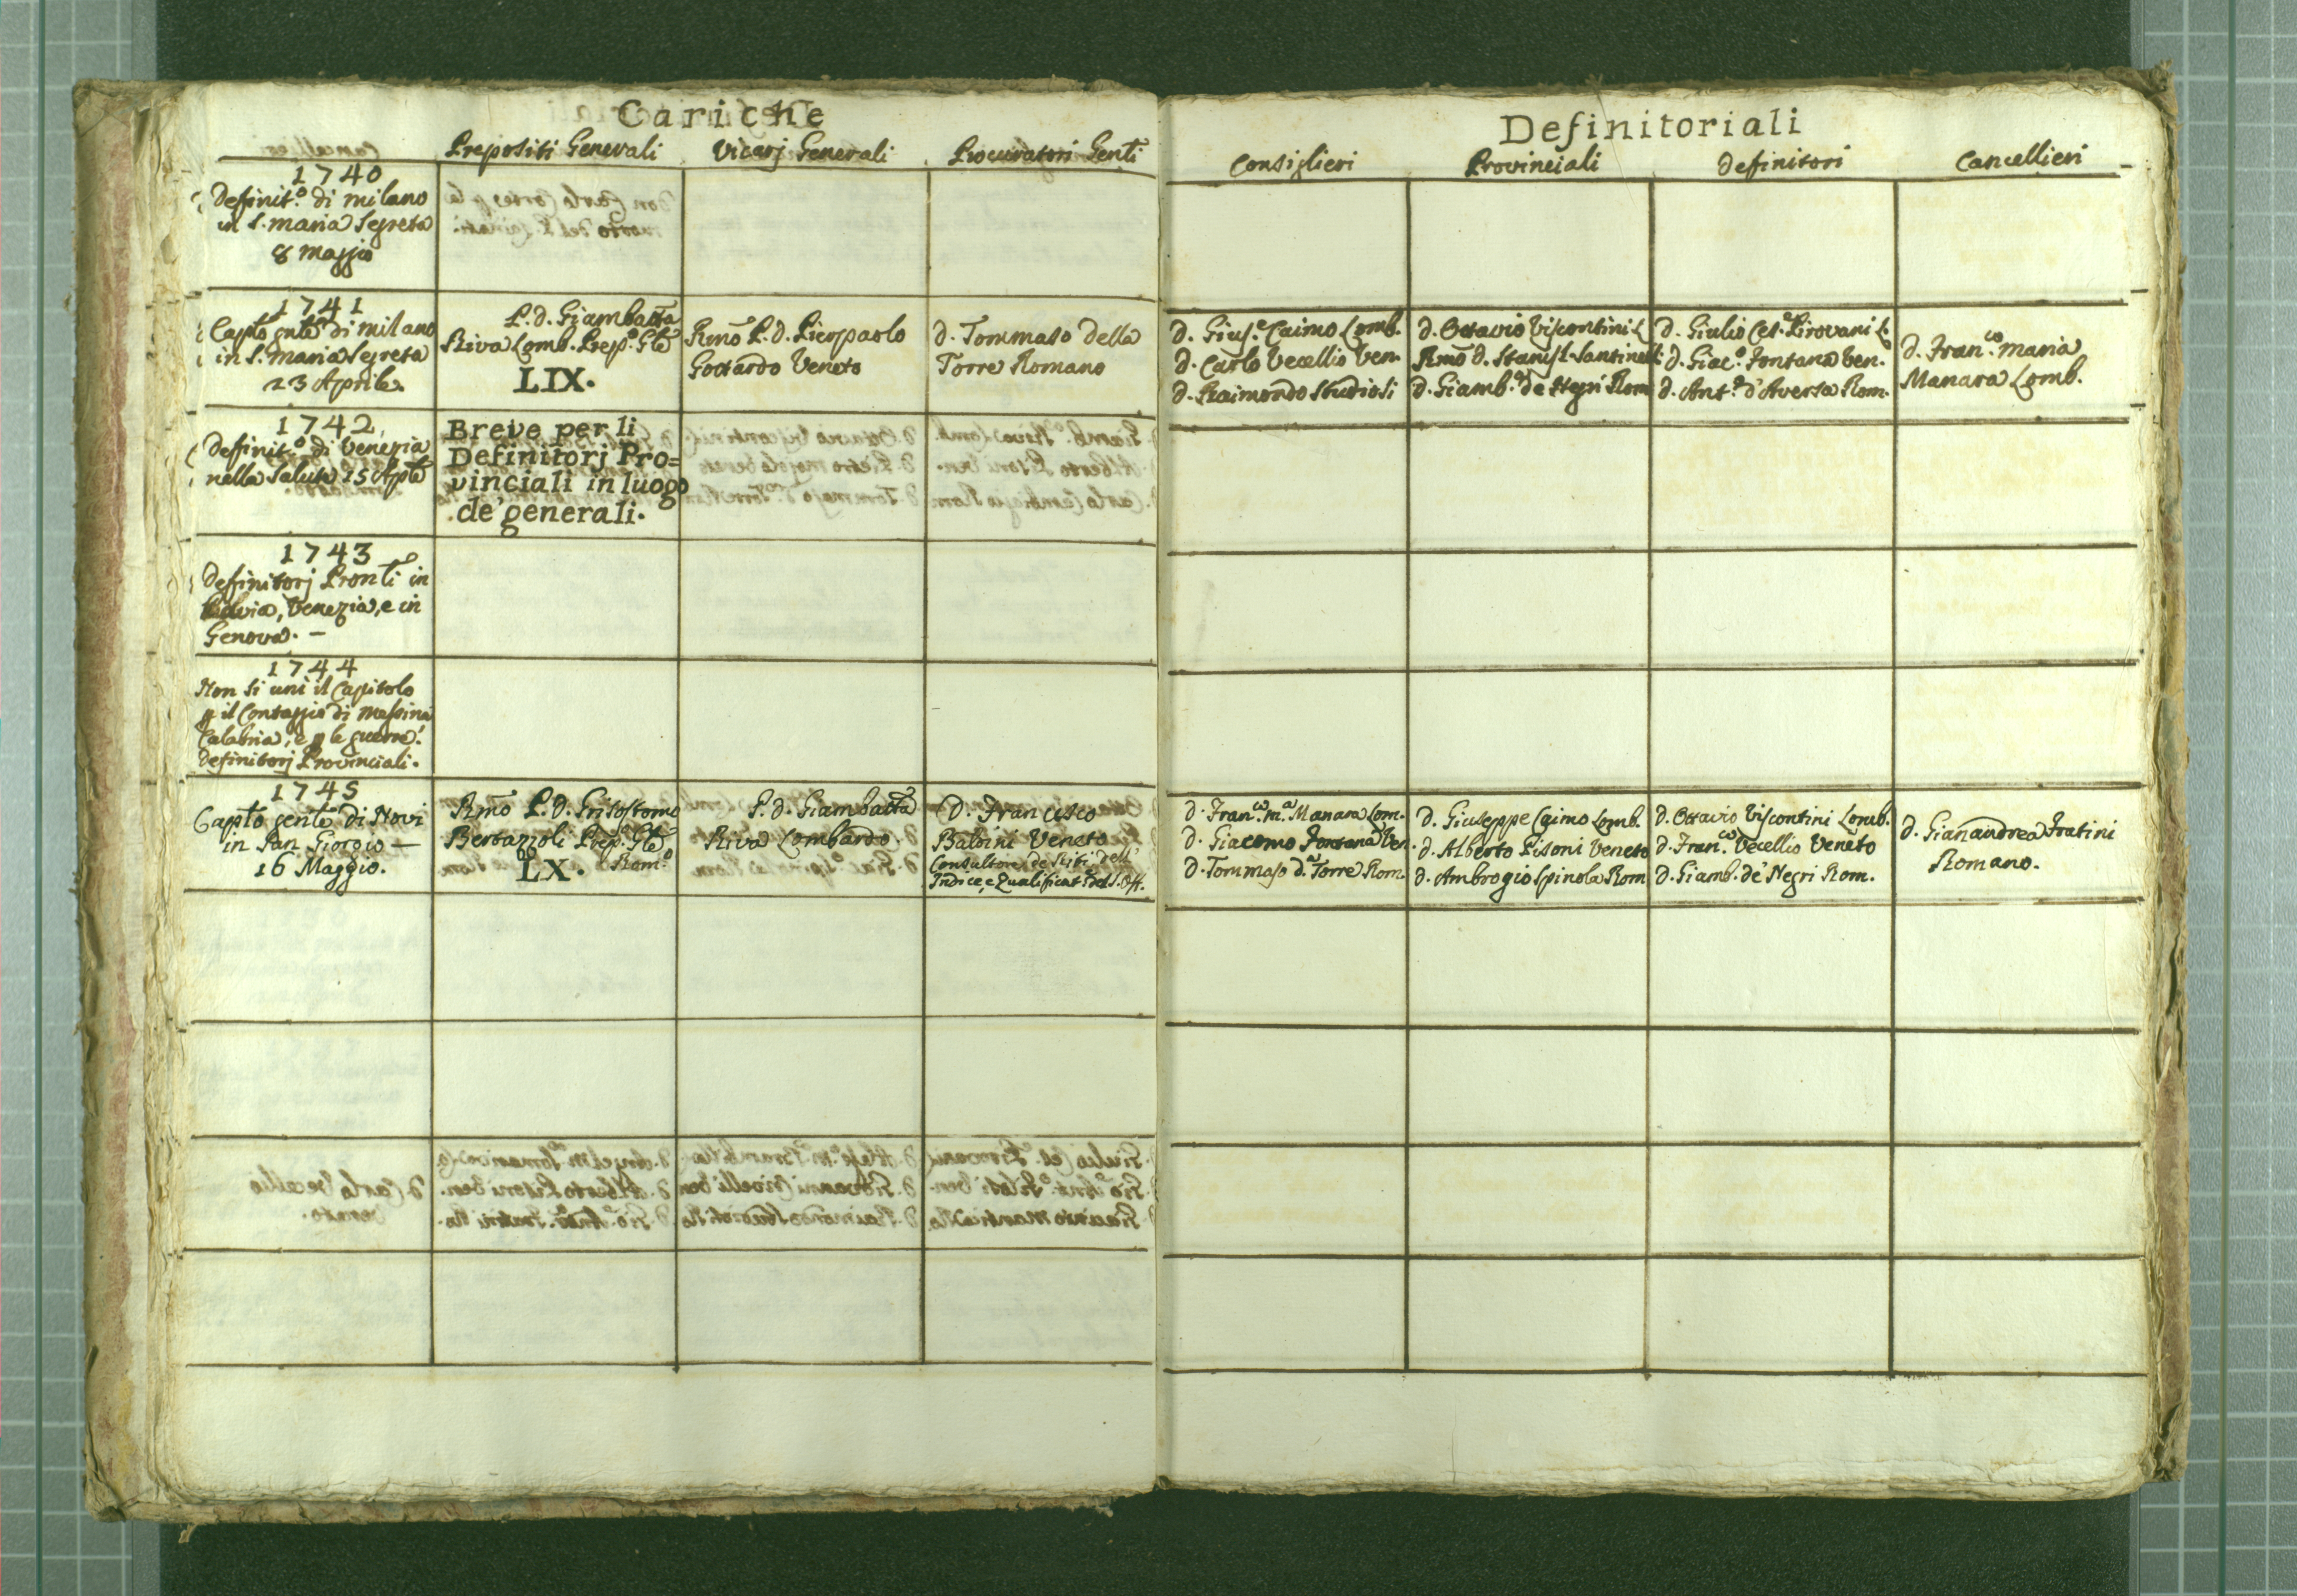 Cariche
Prepositi Generali
Vicarj Generali
Procuratori Gentī
1740
Definit.º di milano
in S. maria Segreta
8 Maggio
1741
Capto gntē di milano
in S. maria Segreta
23 Aprile.
P. d. Giambatta
Riva Lomb. Prep.º Gle
LIX.
Rmō P. d. Pierpaolo
Gottardo Veneto
d. Tommaso della
Torre Romano
1742
Deffinit.º di Venezia
nella Salute 15 Aple
Breve per li
Definitorj Pro=
vinciali in luogo
de' generali.
1743
Deffinitorj Pronti in
Venezia, e in
Genova. -
1744
Non si unì il Capitolo
p il Contaggio di Messina
Calabria, e p le guerre.
Definitorj Provinciali.
1745
Capto gente di Novi
in San Giorgio —
16 Maggio.
Rmō P. D. Grisostomo
Bertazzoli Prep.º Gle
Rom.º
LX.
P. d. Giambatta
Riva Lombardo.
D. Francesco
Baldini Veneto
Consultore de' Riti, dell'
Indice, e Qualificat.e del S. Off.
Definitoriali
Consiglieri
Provinciali
Definitori
Cancellieri
d. Gius.e Caimo Lomb.
d. Carlo Vecellio Ven.
d. Raimondo Studiosi
d. Ottavio Viscontini L.
Rmō d. Stanisl. Santinelli
d. Giamb.a de Negri Rom
d. Giulio Ces.e Pirovani L.
d. Giac.º Fontana Ven.
d. Ant.º d'Aversa Rom.
d. Fran.co Maria
Manara Lomb.
d. Fran.co M.a Manara Lom.
d. Giacomo Fontana Ven.
d. Tommaso d.a Torre Rom.
d. Giuseppe Caimo Lomb.
d. Alberto Pisoni Veneto
d. Ambrogio Spinola Rom
d. Ottavio Viscontini Lomb.
d. Fran.co Vecellio Veneto
d. Giamb. de' Negri Rom.
d. Gianandrea Fratini
Romano.